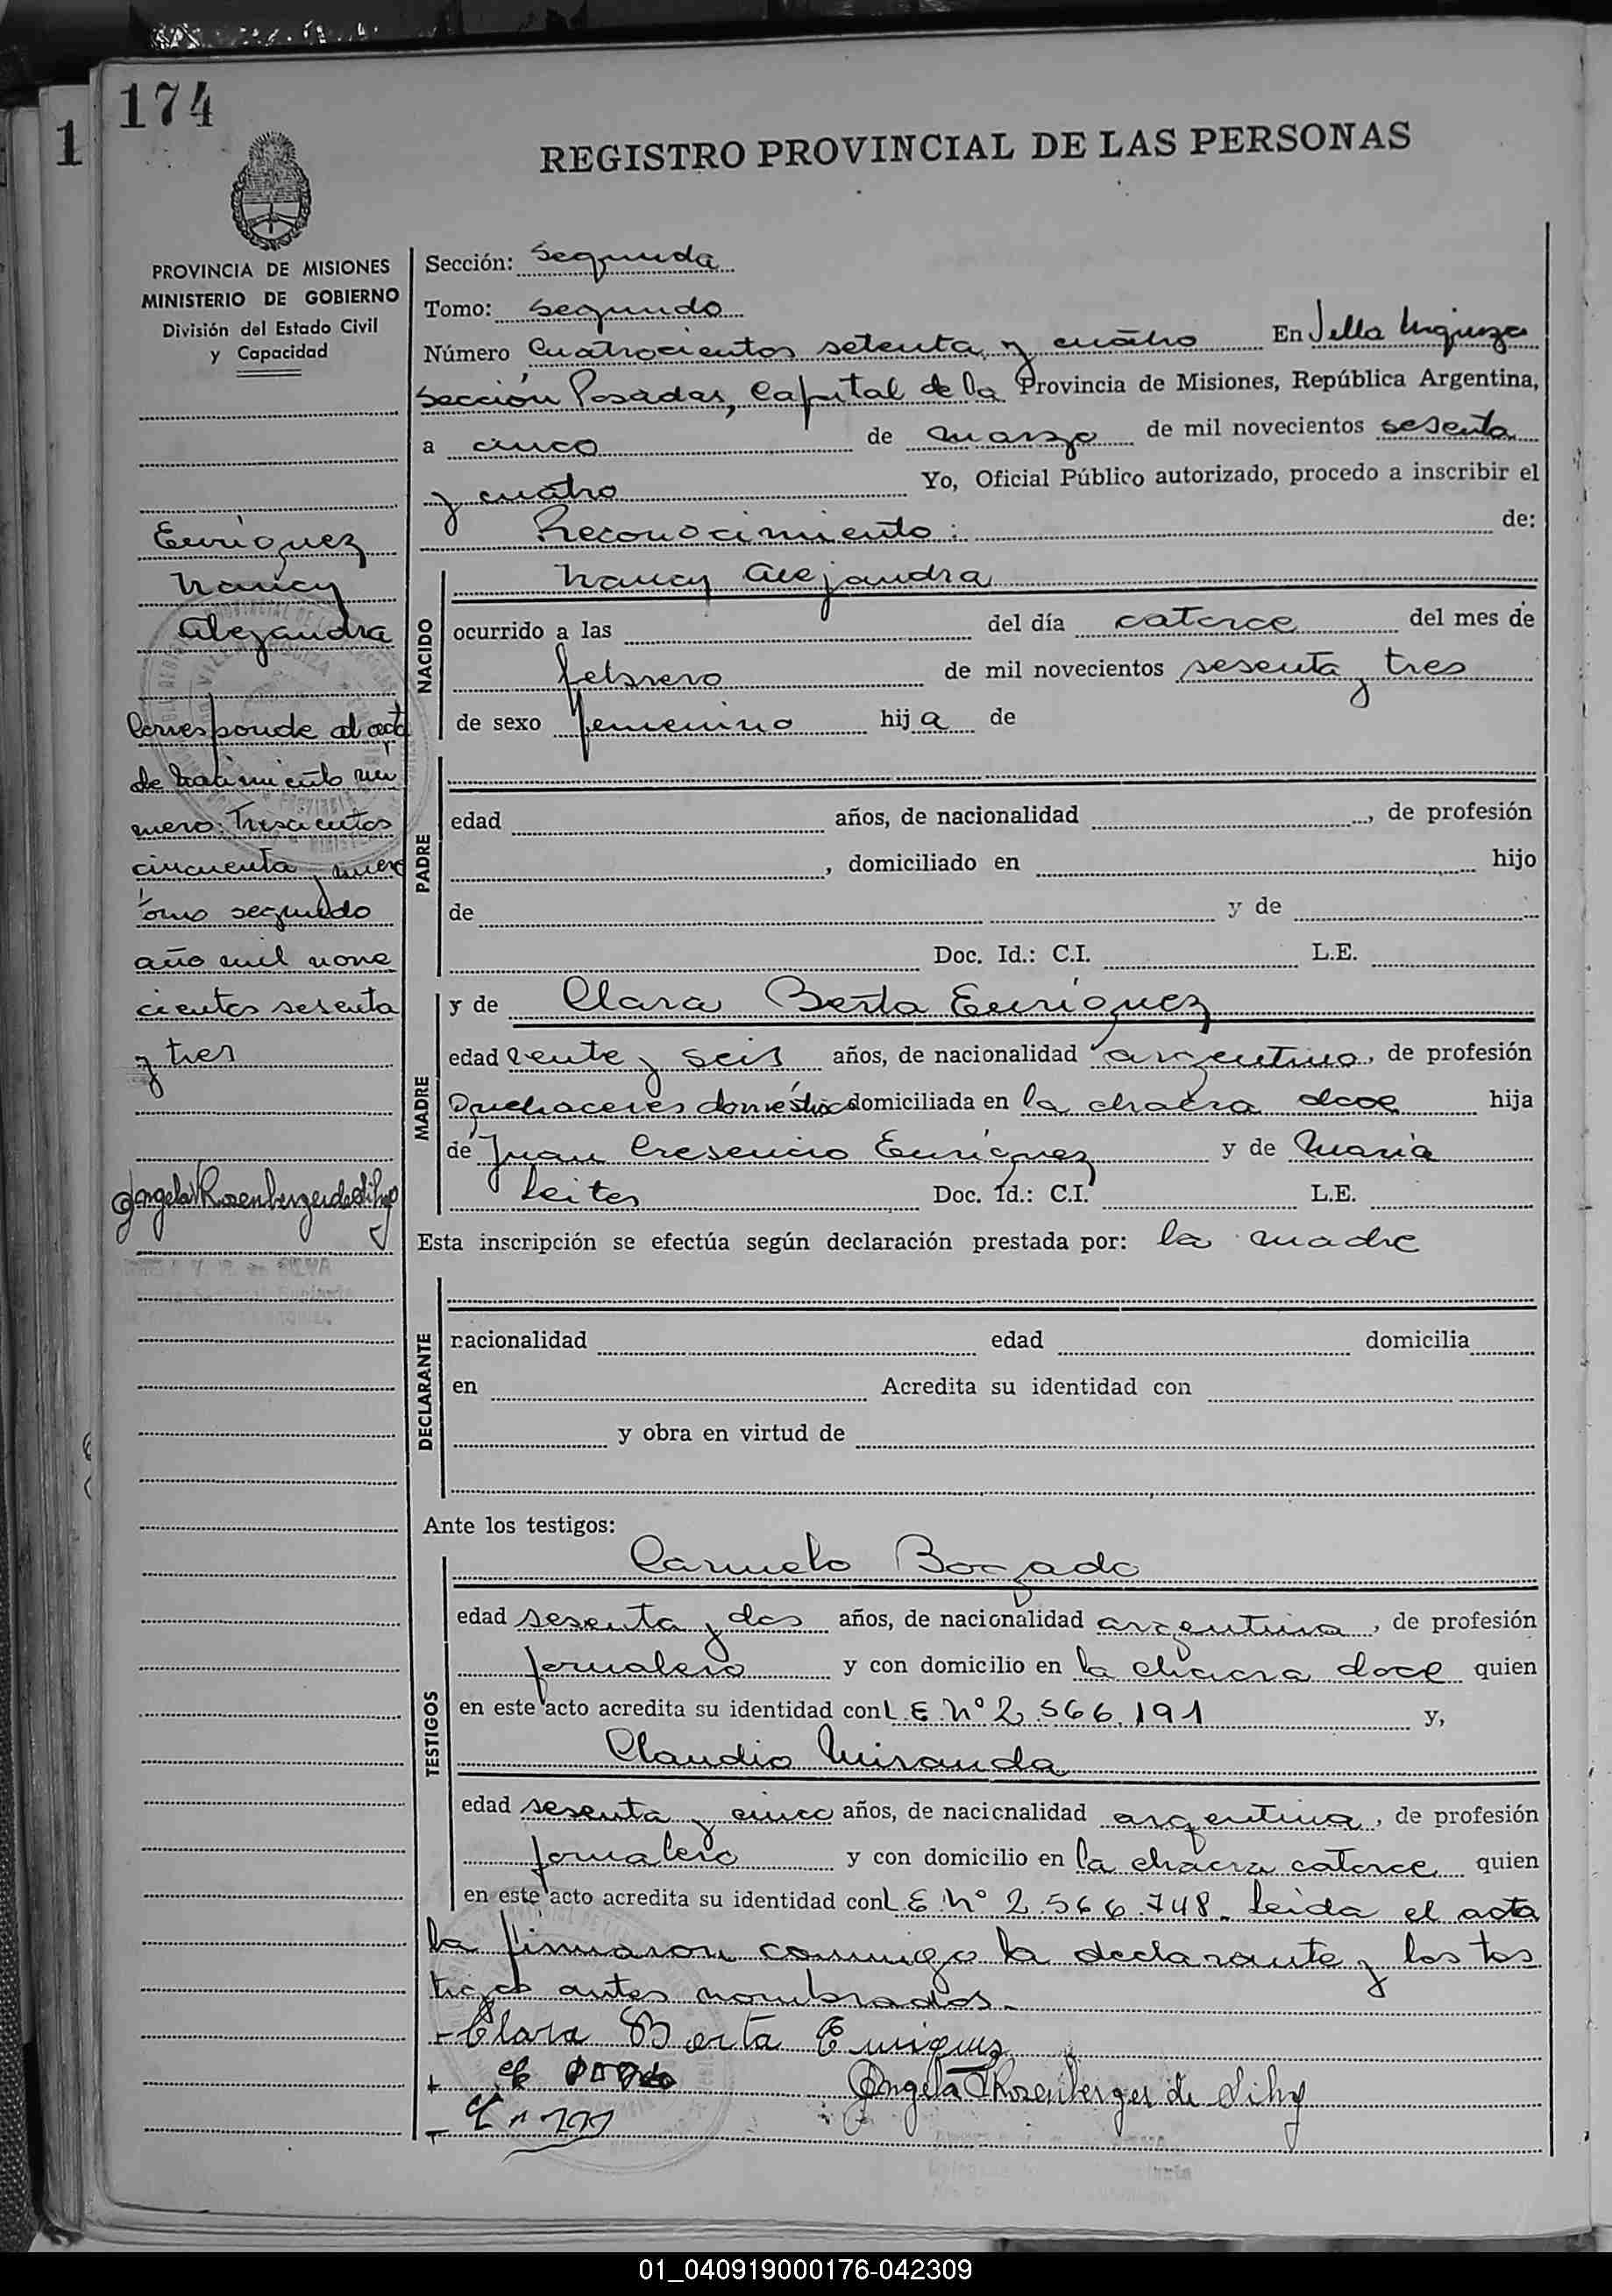 174
1
REGISTRO PROVINCIAL DE LAS PERSONAS
PROVINCIA DE MISIONES
MINISTERIO DE GOBIERNO
División del Estado Civil
y Capacidad
Enriquez
Nancy
Alejandra
Corresponde al acta
de nacimiento nú
mero Trescientos
cincuenta y nueve
tomo segundo
año mil nove
cientos sesenta
y tres
Angela Rosenberger de Silva
Sección: Segunda
Tomo: segundo
Número Cuatrocientos setenta y cuatro En Villa Urquiza
Sección Posadas, Capital de la Provincia de Misiones, República Argentina,
a cinco de marzo de mil novecientos sesenta
y cuatro Yo, Oficial Público autorizado, procedo a inscribir el
Reconocimiento: de:
NACIDO
Nancy Alejandra
ocurrido a las del día catorce del mes de
febrero de mil novecientos sesenta y tres
de sexo femenino hija de
PADRE
edad años, de nacionalidad , de profesión
, domiciliado en hijo
de y de
Doc. Id.: C.I. L.E.
MADRE
y de Clara Berta Enriquez
edad veinte y seis años, de nacionalidad argentina, de profesión
Quehaceres domésticos domiciliada en la chacra doce hija
de Juan Cresencio Enriquez y de Maria
Leites Doc. Id.: C.I. L.E.
Esta inscripción se efectúa según declaración prestada por: la madre
DECLARANTE
nacionalidad edad domicilia
en Acredita su identidad con
y obra en virtud de
Ante los testigos:
TESTIGOS
Carmelo Bogado
edad sesenta y dos años, de nacionalidad argentina, de profesión
jornalero y con domicilio en la chacra doce quien
en este acto acredita su identidad con L.E. Nº 2.566.191 y,
Claudio Miranda
edad sesenta y cinco años, de nacionalidad argentina, de profesión
jornalero y con domicilio en la chacra catorce quien
en este acto acredita su identidad con L.E. Nº 2.566.748. Leida el acta
la firmaron conmigo la declarante y los tes
tigos antes nombrados.-
Clara Berta Enriquez
Angela Rosenberger de Silva
01_040919000176-042309